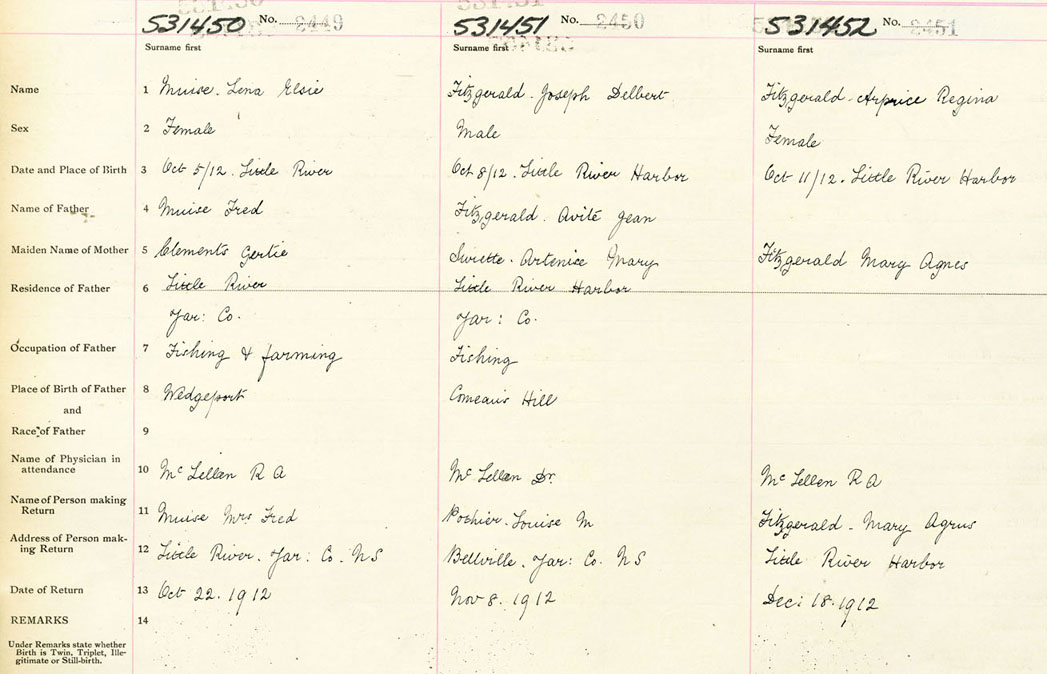 531450 No. 2449 531451 No. 2450 531452 No. 2451
Surname first Surname first Surname first
Name 1 Muise. Lena Elsie Fitzgerald. Joseph Delbert Fitzgerald. Arprice Regina
Sex 2 Female Male Female
Date and Place of Birth 3 Oct 5/12. Little River Oct 8/12. Little River Harbor Oct 11/12. Little River Harbor
Name of Father 4 Muise Fred Fitzgerald. Avite Jean
Maiden Name of Mother 5 Clements Gertie Surette. Artenice Mary Fitzgerald Mary Agnes
Residence of Father 6 Little River Little River Harbor
Yar: Co. Yar: Co.
Occupation of Father 7 Fishing & farming Fishing
Place of Birth of Father 8 Wedgeport Comeau's Hill
and
Race of Father 9
Name of Physician in
attendance 10 McLellan R A McLellan Dr. McLellen R A
Name of Person making
Return 11 Muise Mrs Fred Pothier. Louise M Fitzgerald. Mary Agnus
Address of Person mak-
ing Return 12 Little River. Yar: Co. N S Bellville. Yar: Co. N S Little River Harbor
Date of Return 13 Oct 22. 1912 Nov 8. 1912 Dec: 18. 1912
REMARKS 14
Under Remarks state whether
Birth is Twin, Triplet, Ille-
gitimate or Still-birth.